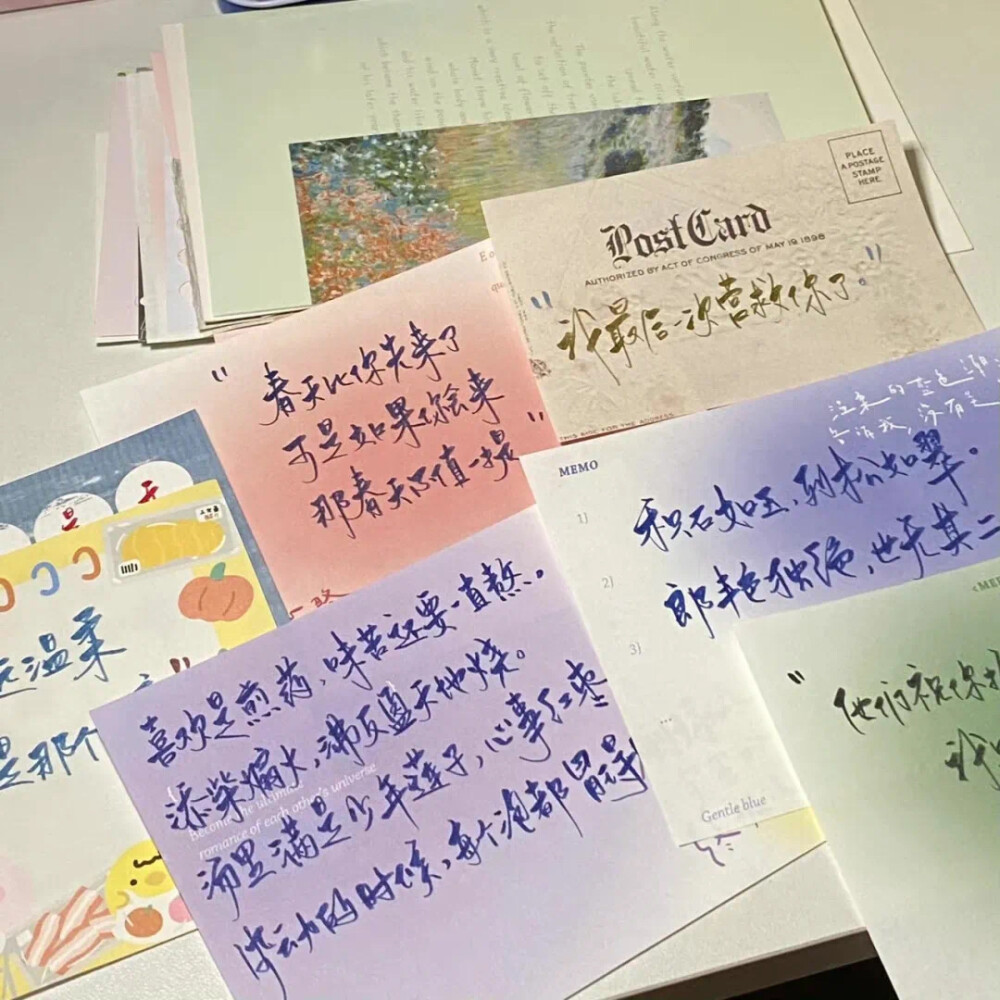 PLACE
A POSTAGE
STAMP
HERE
PostCard
AUTHORIZED BY ACT OF CONGRESS OF MAY 19, 1898
"我最后一次营救你了。"
THIS SIDE FOR THE ADDRESS
"春天比你先来了
可是如果你绘来
那春天不值一提"
MEMO
1)
积石如玉,列松如翠。
2)
郎艳独绝,世无其二
3)
...
Gentle blue
温柔
是那个
喜欢是煎药,味苦还要一直熬。
添柴煽火,沸反盈天地烧。
汤里满是少年莲子,心事红枣
波动的时候,每个泡都冒得
Become the ultimate
romance of each other's universe
"他们祝你
我